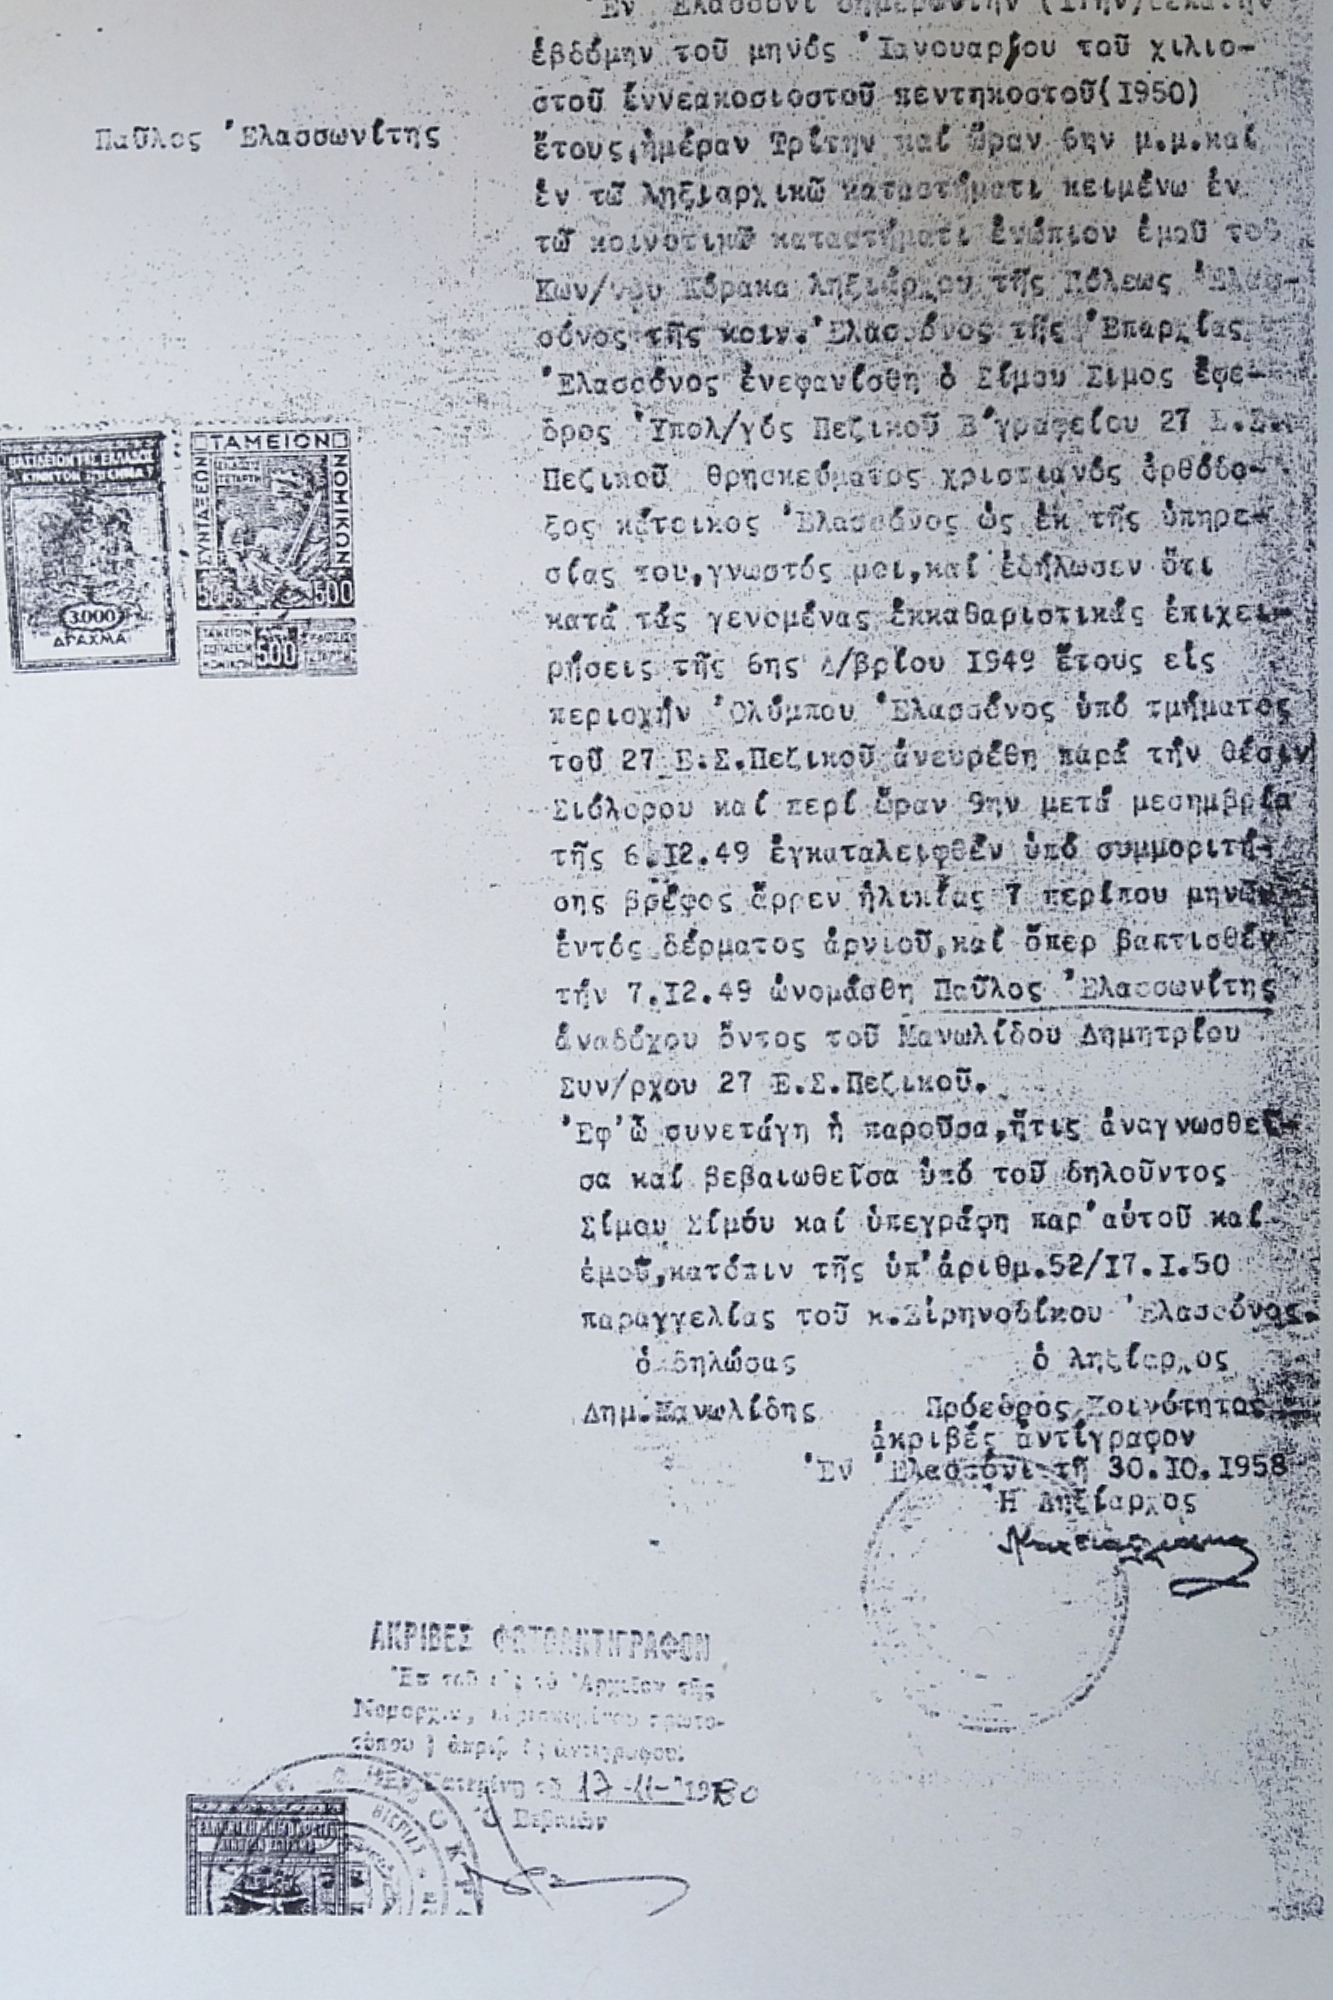 Ἐν Ἐλασσόνι σήμερον τήν (17ην) δεκάτην
ἑβδόμην τοῦ μηνός Ἰανουαρίου τοῦ χιλιο-
στοῦ ἐννεακοσιοστοῦ πεντηκοστοῦ(1950)
Παῦλος Ἐλασσωνίτης
ἔτους,ἡμέραν Τρίτην καί ὥραν 6ην μ.μ.καί
ἐν τῶ ληξιαρχικῶ καταστήματι κειμένω ἐν
τῶ κοινοτικῶ καταστήματι ἐνώπιον ἐμοῦ τοῦ
Κων/νου Κόρακα ληξιάρχου τῆς Πόλεως Ἐλασ-
σόνος τῆς κοιν.Ἐλασσόνος τῆς Ἐπαρχίας
Ἐλασσόνος ἐνεφανίσθη ὁ Σίμου Σιμος ἔφε-
δρος Ὑπολ/γός Πεζικοῦ Β΄γραφείου 27 Ε.Σ.
Πεζικοῦ θρησκεύματος χριστιανός ὀρθόδο-
ξος κάτοικος Ἐλασσόνος ὡς ἐκ τῆς ὑπηρε-
σίας του,γνωστός μοι,καί ἐδήλωσεν ὅτι
κατά τάς γενομένας ἐκκαθαριστικάς ἐπιχει-
ρήσεις τῆς 6ης Δ/βρίου 1949 ἔτους είς
περιοχήν Ὀλύμπου Ἐλασσόνος ὑπό τμήματος
τοῦ 27 Ε.Σ.Πεζικοῦ ἀνευρέθη παρά τήν θέσιν
Σιόλορου καί περί ὥραν 9ην μετά μεσημβρία
τῆς 6.12.49 ἐγκαταλειφθέν ὑπό συμμοριτή-
σης βρέφος ἄρρεν ἡλικίας 7 περίπου μηνῶν
ἐντός δέρματος ἀρνιοῦ,καί ὅπερ βαπτισθέν
τήν 7.12.49 ὠνομάσθη Παῦλος Ἐλασσωνίτης
ἀναδόχου ὄντος τοῦ Μανωλίδου Δημητρίου
Συν/ρχου 27 Ε.Σ.Πεζικοῦ.
Ἐφ'ὧ συνετάγη ἡ παροῦσα,ἥτις ἀναγνωσθεῖ-
σα καί βεβαιωθεῖσα ὑπό τοῦ δηλοῦντος
Σίμου Σίμόυ καί ὑπεγράφη παρ'αὐτοῦ καί
ἐμοῦ,κατόπιν τῆς ὑπ'ἀριθμ.52/17.1.50
παραγγελίας τοῦ κ.Εἰρηνοδίκου Ἐλασσόνος.
ὁ δηλώσας ὁ ληξίαρχος
Δημ.Μανωλίδης Πρόεδρος Κοινότητας
ἀκριβές ἀντίγραφον
Ἐν Ἐλασσόνι τῆ 30.10.1958
Ἡ Ληξίαρχος
ΒΑΣΙΛΕΙΟΝ ΤΗΣ ΕΛΛΑΔΟΣ
ΚΙΝΗΤΟΝ ΕΠΙΣΗΜΑ
3.000
ΔΡΑΧΜΑΙ
ΤΑΜΕΙΟΝ
ΝΟΜΙΚΩΝ
ΣΥΝΤΑΞΕΩΝ
500 500
500
ΑΚΡΙΒΕΣ ΦΩΤΟΑΝΤΙΓΡΑΦΟΝ
Ἐκ τοῦ εἰς τό Ἀρχεῖον τῆς
Νομαρχίας εὑρισκομένου πρωτο-
τύπου ἤ ἀκριβοῦς ἀντιγράφου.
Ἐν Κατερίνη τῆ 17-11-1980
Ὁ Βεβαιῶν